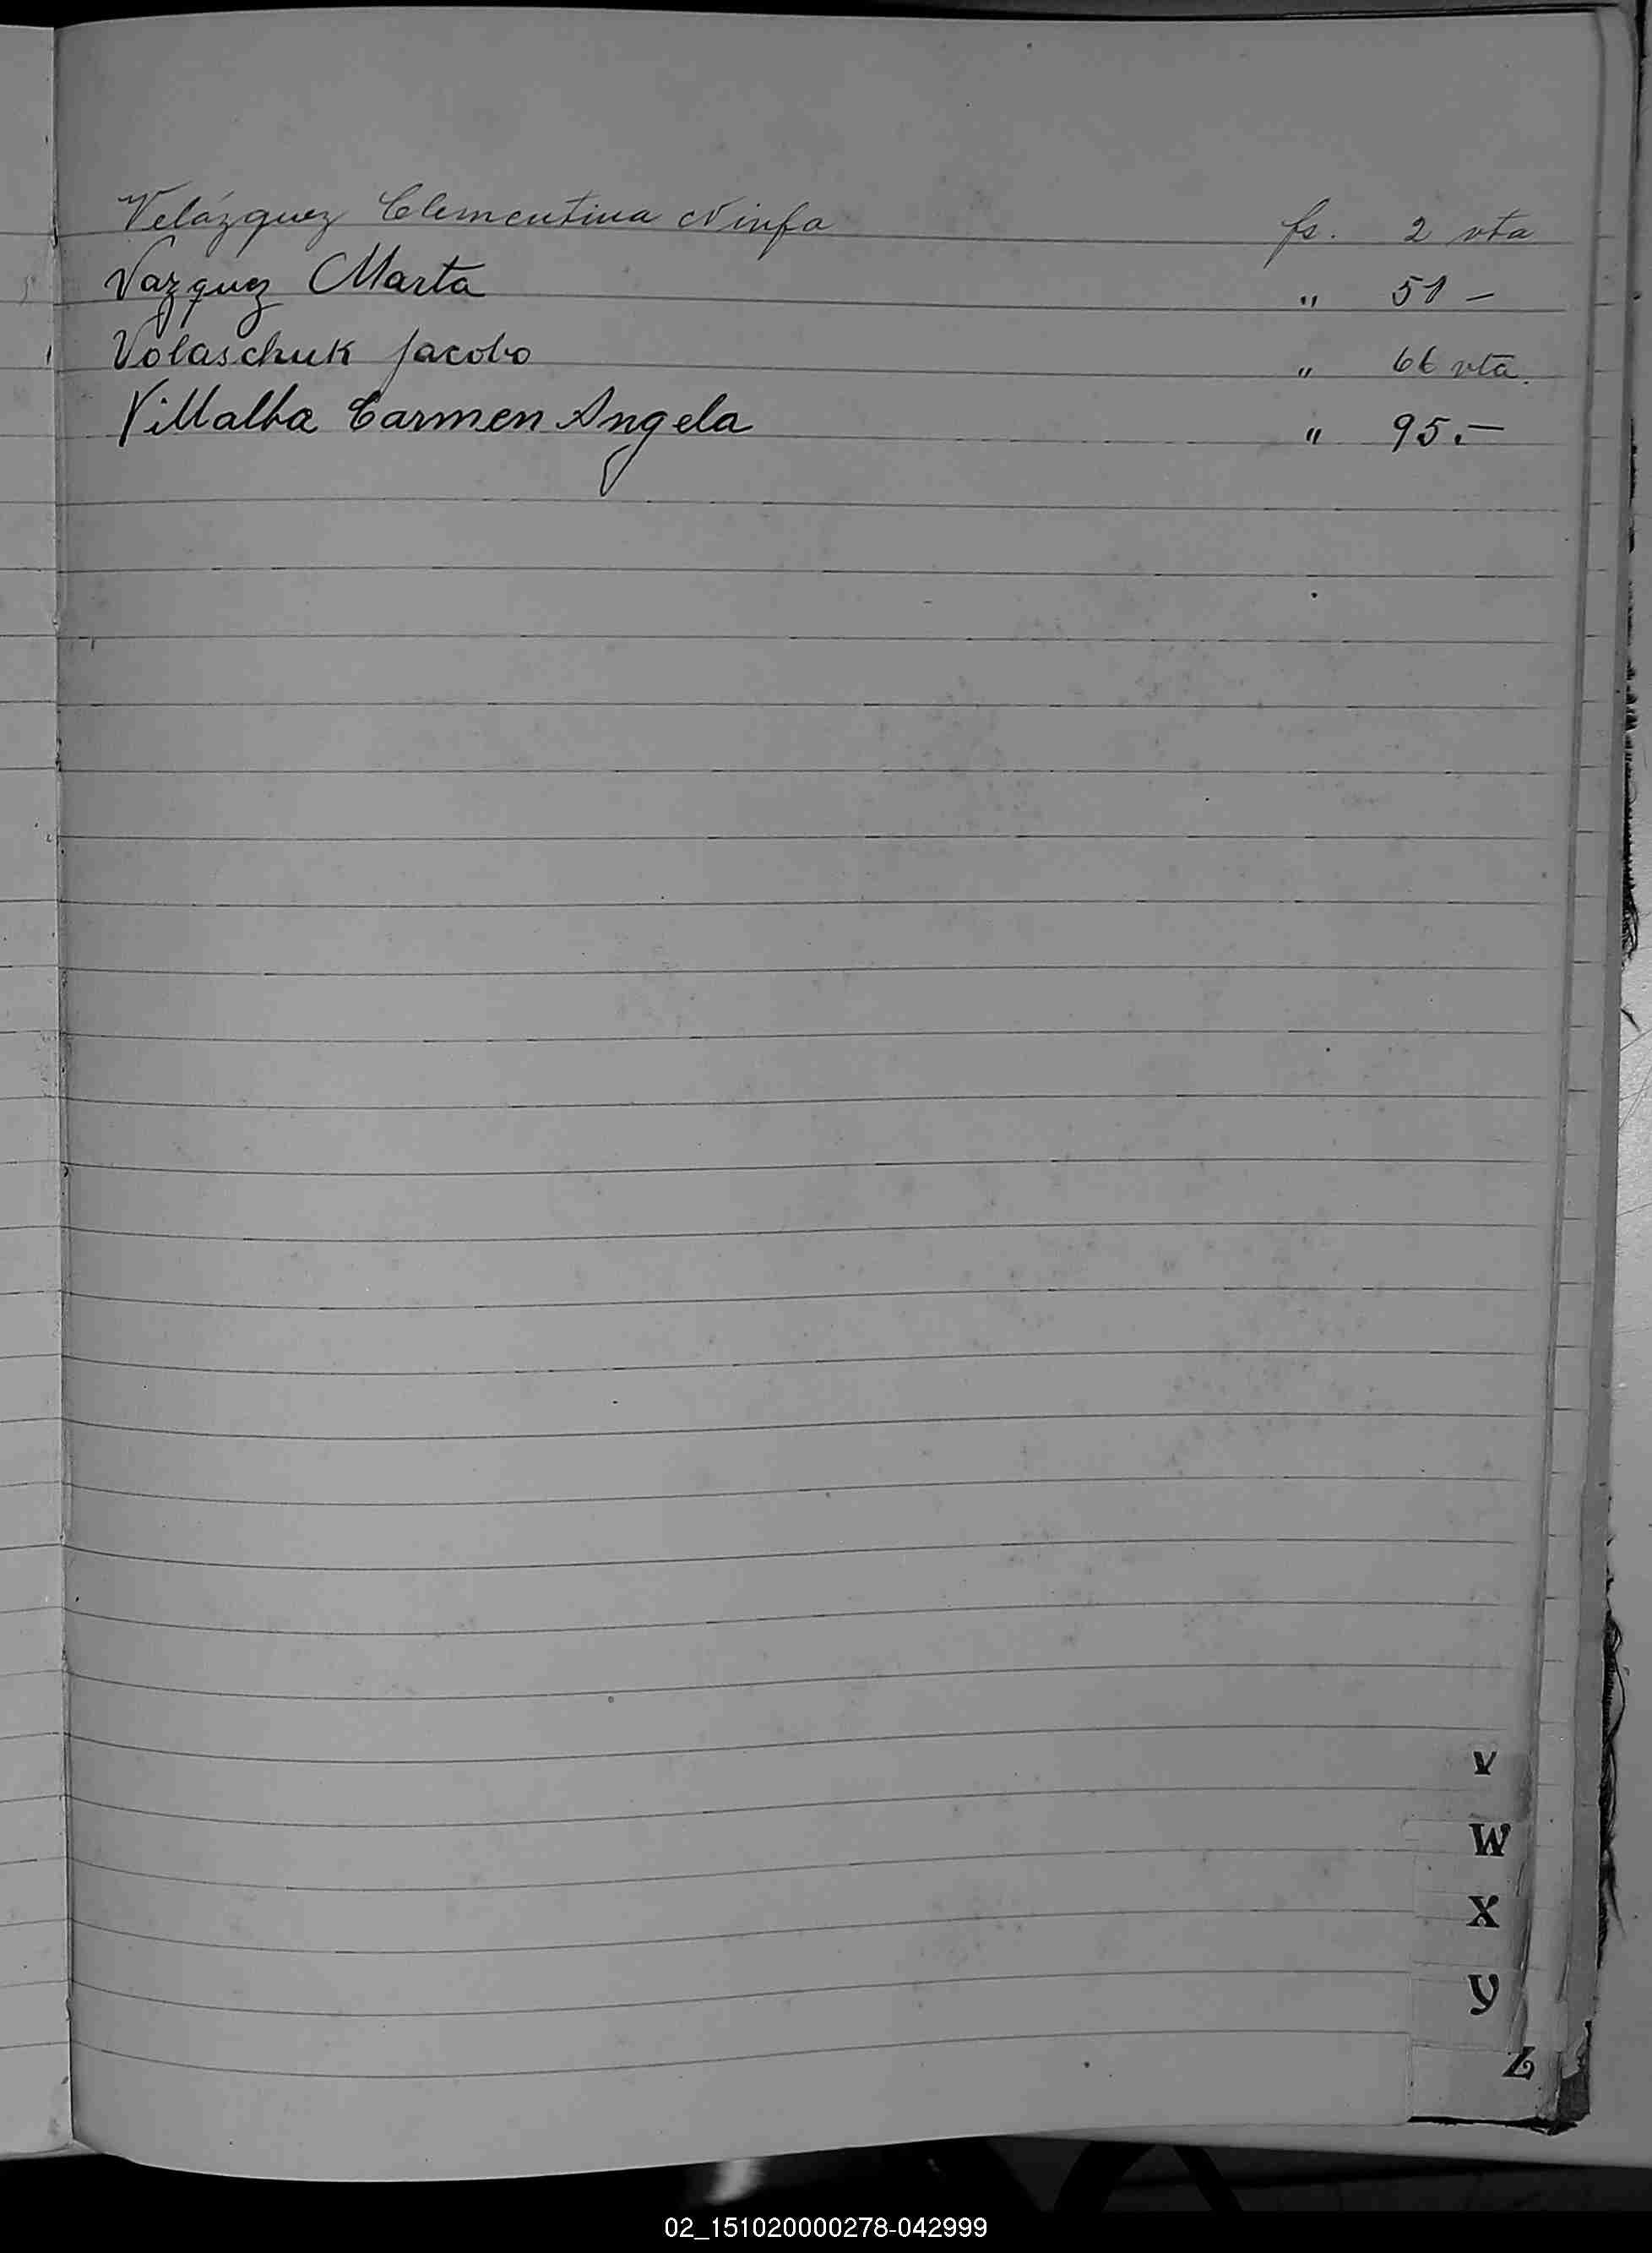 Velázquez Clementina Ninfa fs. 2 vta
Vazquez Marta " 51 –
Volaschuk Jacobo " 66 vta.
Villalba Carmen Angela " 95.–
V
W
X
Y
Z
02_151020000278-042999